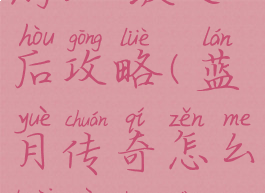 hòu gōng lüè lán
后攻略(蓝
yuè chuán qí zěn me
月传奇怎么